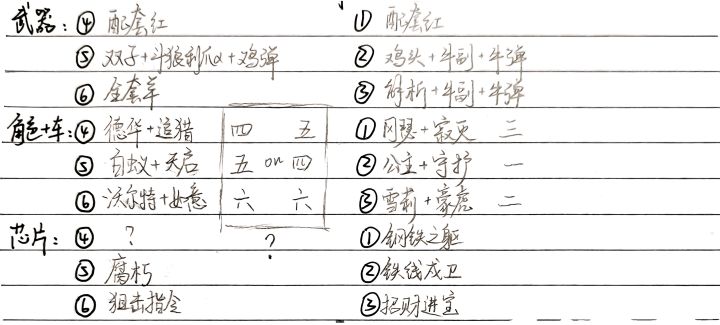 武器：④ 配套红 ① 配套红
⑤ 双子+斗狼利爪α+鸡弹 ② 鸡头+牛副+牛弹
⑥ 全套羊 ③ 解析+牛副+牛弹
角色+车：④ 德华+追猎 四 五 ① 冈瑟+寂灭 三
⑤ 白蚁+天启 五 or 四 ② 公主+守护 一
⑥ 沃尔特+如意 六 六 ③ 雪莉+豪鹿 二
芯片：④ ? ? ① 钢铁之躯
⑤ 腐朽 ② 铁线戍卫
⑥ 狙击指令 ③ 招财进宝